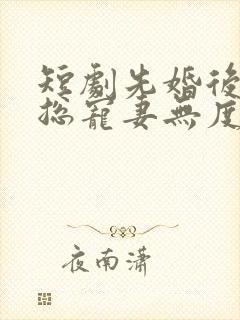 短劇先婚後
總寵妻無度
夜南潇